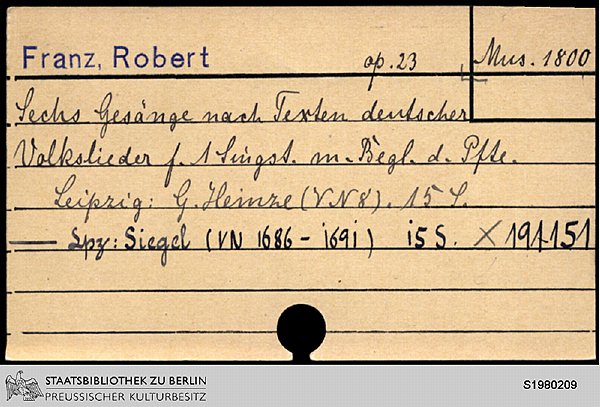 Franz, Robert op. 23 Mus. 1800
Sechs Gesänge nach Texten deutscher
Volkslieder f. 1 Singst. m. Begl. d. Pfte.
Leipzig: G. Heinze (VN 8). 15 S.
— Lpz: Siegel (VN 1686 - 1691) 15 S. X 191151
STAATSBIBLIOTHEK ZU BERLIN
PREUSSISCHER KULTURBESITZ
S1980209